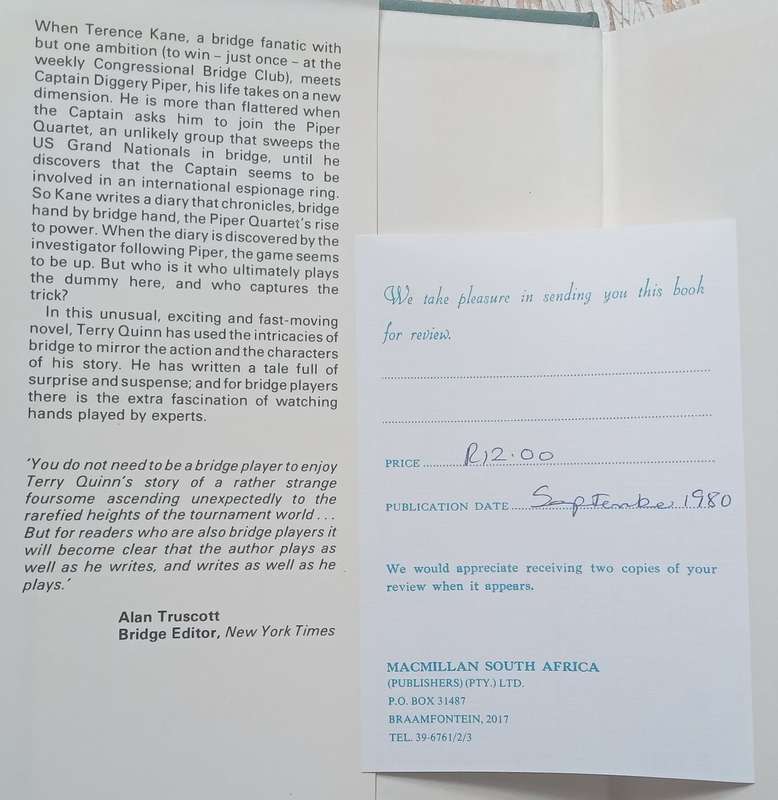 When Terence Kane, a bridge fanatic with
but one ambition (to win – just once – at the
weekly Congressional Bridge Club), meets
Captain Diggery Piper, his life takes on a new
dimension. He is more than flattered when
the Captain asks him to join the Piper
Quartet, an unlikely group that sweeps the
US Grand Nationals in bridge, until he
discovers that the Captain seems to be
involved in an international espionage ring.
So Kane writes a diary that chronicles, bridge
hand by bridge hand, the Piper Quartet's rise
to power. When the diary is discovered by the
investigator following Piper, the game seems
to be up. But who is it who ultimately plays
the dummy here, and who captures the
trick?
In this unusual, exciting and fast-moving
novel, Terry Quinn has used the intricacies of
bridge to mirror the action and the characters
of his story. He has written a tale full of
surprise and suspense; and for bridge players
there is the extra fascination of watching
hands played by experts.
'You do not need to be a bridge player to enjoy
Terry Quinn's story of a rather strange
foursome ascending unexpectedly to the
rarefied heights of the tournament world . . .
But for readers who are also bridge players it
will become clear that the author plays as
well as he writes, and writes as well as he
plays.'
Alan Truscott
Bridge Editor, New York Times
We take pleasure in sending you this book
for review.
PRICE R12.00
PUBLICATION DATE September 1980
We would appreciate receiving two copies of your
review when it appears.
MACMILLAN SOUTH AFRICA
(PUBLISHERS) (PTY.) LTD.
P.O. BOX 31487
BRAAMFONTEIN, 2017
TEL. 39-6761/2/3